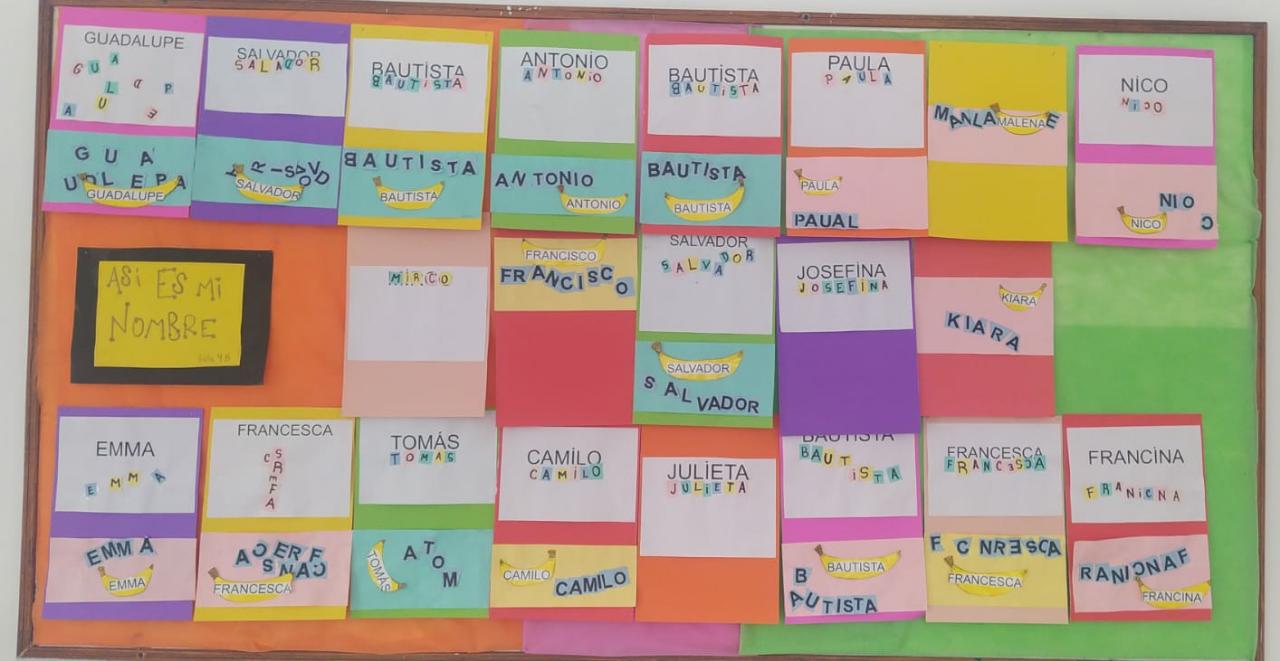 GUADALUPE
GUA
L D P
A U E
GUA
UDLEPA
GUADALUPE
SALVADOR
SALADOR
SALVADOR
BAUTİSTA
BAUTİSTA
BAUTİSTA
BAUTISTA
ANTONİO
ANTONİO
ANTONIO
ANTONIO
BAUTİSTA
BAUTİSTA
BAUTISTA
BAUTISTA
PAULA
PAULA
PAULA
PAUAL
MANLA MALENA E
NİCO
NİCO
NIO
NICO C
ASİ ES Mİ
NOMBRE
Sala 4B
MİRCO
FRANCISCO
FRANCISCO
SALVADOR
SALVADOR
SALVADOR
SALVADOR
JOSEFİNA
JOSEFİNA
KIARA
KIARA
EMMA
EMMA
EMMA
EMMA
FRANCESCA
C S
R
E
F
A
FRANCESCA
TOMÁS
TOMAS
TOMÁS
ATOM
CAMİLO
CAMİLO
CAMILO
CAMILO
JULİETA
JULİETA
BAUTISTA
BAUT
İSTA
BAUTISTA
B
AUTISTA
FRANCESCA
FRANCESCA
F CNRESCA
FRANCESCA
FRANCİNA
FRANİCNA
RANICNAF
FRANCINA